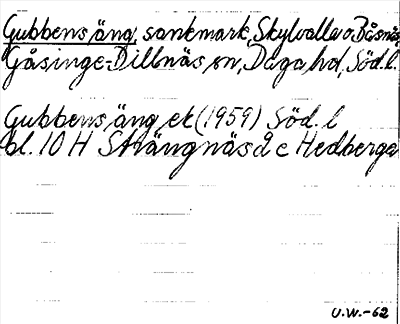 Gubbens äng, sankmark, Skylvalla o Båsnäs,
Gåsinge-Dillnäs sn, Daga hd, Söd.l.
Gubbens äng ek (1959) Söd. l
bl. 10 H Strängnäs d c Hedberga
U.W.-62